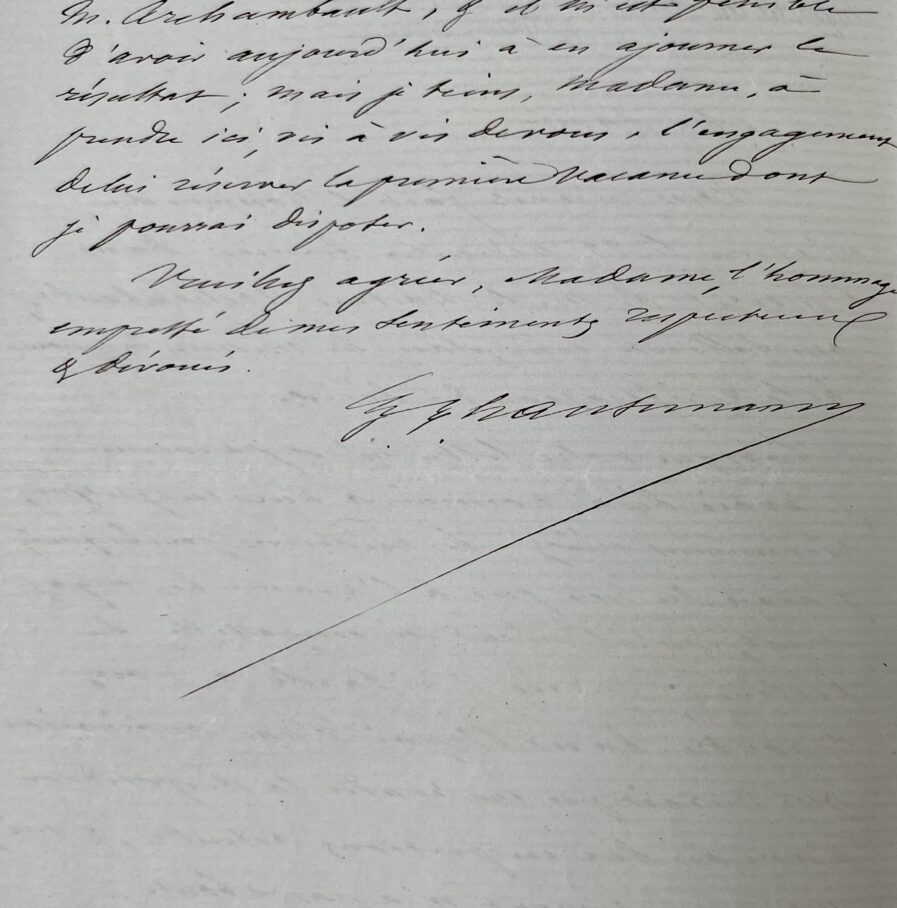 M. Archambault, & il m'est pénible
d'avoir aujourd'hui à en ajourner le
résultat; mais je tiens, Madame, à
prendre ici, vis à vis de vous, l'engagement
de lui réserver la première vacance dont
je pourrai disposer.
Veuillez agréer, Madame, l'hommage
empressé de mes sentiments respectueux
& dévoués.
Haussmann